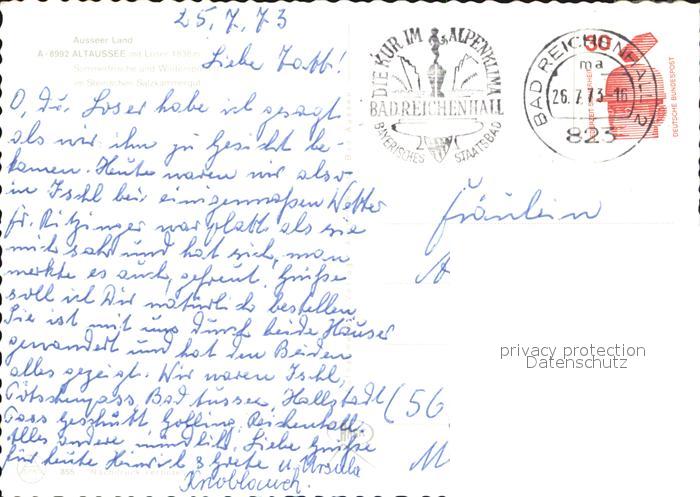 25.7.73
Ausseer Land
A-8992 ALTAUSSEE mit Loser 1838m
Sommerfrische und Wintersport
im Steirischen Salzkammergut
Liebe Tatt!
O, Du. Loser habe ich gesagt
als wir ihn zu Gesicht be-
kamen. Heute waren wir also
in Ischl bei einigermaßen Wetter
Fr. Ritzinger war platt als sie
mich sah und hat sich, man
merkte es auch, gefreut. Grüße
soll ich Dir natürlich bestellen
Sie ist mit uns durch beide Häuser
gewandert und hat den Beiden
alles gezeigt. Wir waren Ischl,
Pötschenpass, Bad Aussee, Hallstadt
Pass Geschütt, Golling, Reichenhall.
Alles andere mündlich. Liebe Grüße
für heute Heinrich & Grete u. Ursula
Knoblauch.
DIE KUR IM ALPENKLIMA
BAD REICHENHALL
BAYERISCHES STAATSBAD
BAD REICHENHALL 2
ma
26.7.73-16
823
30
DEUTSCHE BUNDESPOST
Fräulein
A
(56
M
privacy protection
Datenschutz
855